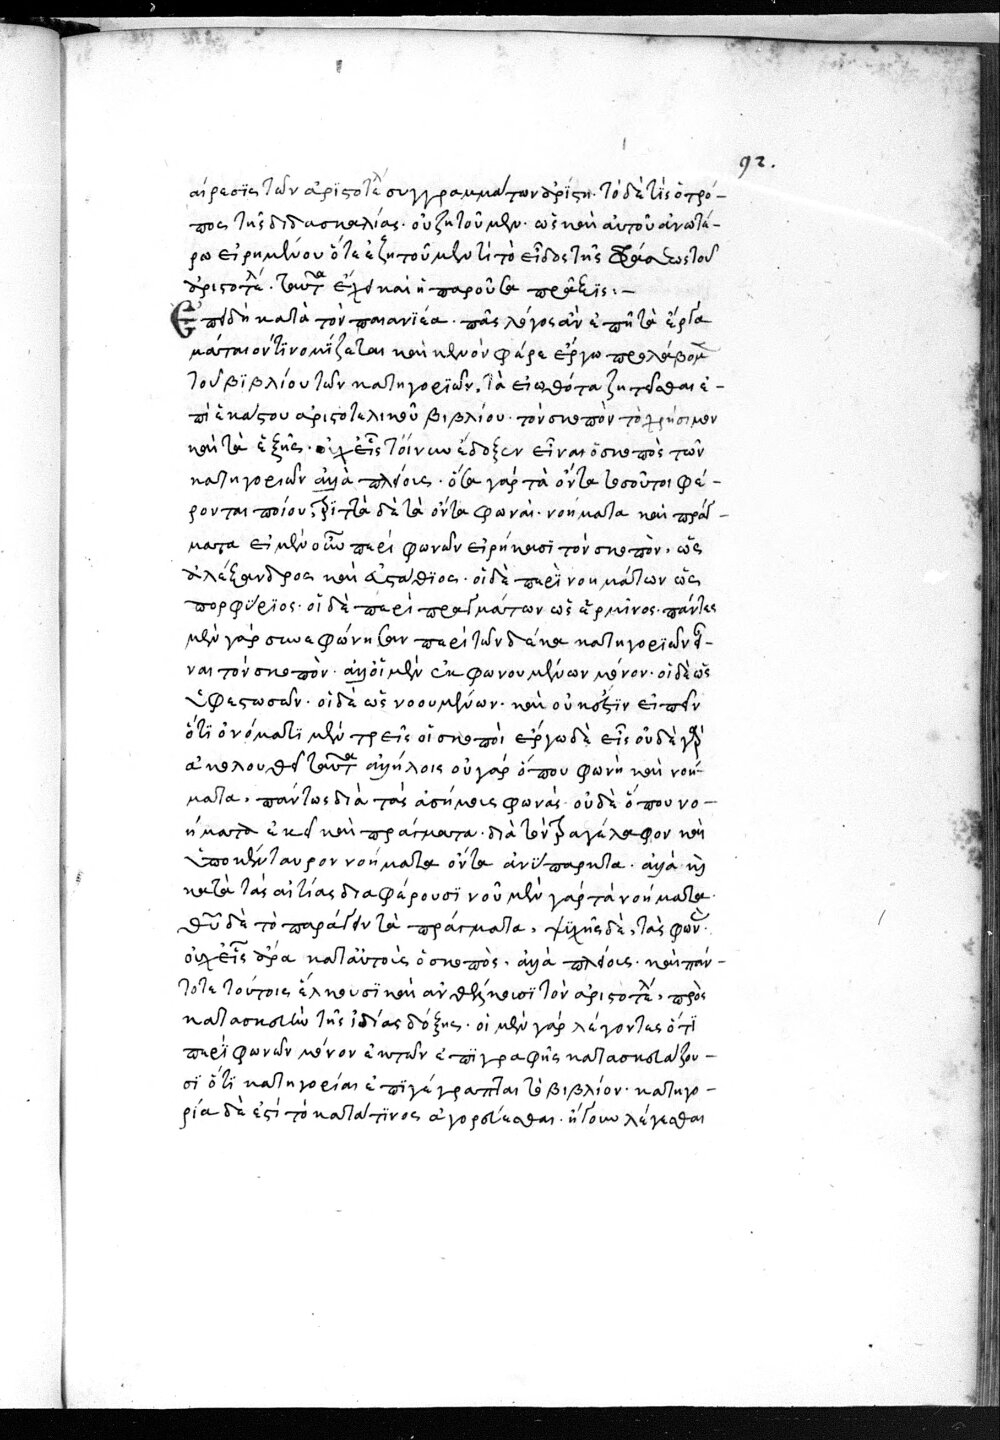 92.
αἱρεσϊς τῶν ἀρϊστοτελ συγγραμμάτων ἀρϊστη. τὸ δὲ τίς ὁ τρό-
πος τῆς διδασκαλίας. οὐ ζητοῦμεν. ὡς καὶ αὐτοῦ ἀνωτέ-
ρω εἰρημένου ὅτε ἐζητοῦμεν τί τὸ εἶδος τῆς φράσεως τοῦ
ἀριστοτέλ. ταῦτα ἔχει καὶ ἡ παροῦσα πρᾶξις :-
Ἐπειδὴ κατὰ τὸν παιανϊέα. πᾶς λόγος ἂν ἐπῆ τὰ ἔργα
μάταιόν τϊ νομίζεται καὶ κενὸν φέρε ἔργω προλάβομ
τοῦ βϊβλίου τῶν κατηγορϊῶν. τὰ εἰωθότα ζητεῖσθαι ἐ-
πὶ ἑκάστου ἀριστοτελικοῦ βιβλίου. τὸν σκοπὸν τὸ χρήσιμον
καὶ τὰ ἑξῆς. οὐχ εἷς τοίνυν ἔδοξεν εἶναι ὁ σκοπὸς τῶν
κατηγοριῶν ἀλλὰ πλείοις. ὅσα γὰρ τὰ ὄντα τοσοῦτοι φέ-
ρονται ποίου, τριττὰ δὲ τὰ ὄντα φωναὶ. νοήματα καὶ πράγ-
ματα εἰ μὲν οὖν περὶ φωνῶν εἰρήκασι τὸν σκοπὸν, ὡς
ἀλέξανδρος καὶ εὐστάθϊος. οἱ δὲ περὶ νοημάτων ὡς
πορφύρϊος. οἱ δὲ περὶ πραγμάτων ὡς ἑρμῖνος. πάντες
μὲν γὰρ συνεφώνησαν περὶ τῶν δέκα κατηγορϊῶν εἶ-
ναι τὸν σκοπὸν. ἀλλ' οἱ μὲν ἐκφωνουμένων μόνον. οἱ δὲ ὡς
ὑφεστωσῶν. οἱ δὲ ὡς νοουμένων. καὶ οὐκ ἔστϊν εἰπεῖν
ὅτϊ ὀνόματϊ μὲν τρεῖς οἱ σκοποὶ ἔργω δὲ εἷς οὐδὲ γὰρ
ἀκολουθεῖ ταῦτα ἀλλήλοις οὐ γὰρ ὅπου φωνὴ καὶ νοή-
ματα. πάντως διὰ τὰς ἀσήμους φωνὰς. οὐδὲ ὅπου νο-
ήματα ἐκεῖ καὶ πράγματα. διὰ τὸν τραγέλαφον καὶ
ἱπποκένταυρον νοήματα ὄντα ἀνΰπαρκτα. ἀλλὰ καὶ
κατὰ τὰς αἰτίας διαφέρουσϊ νοῦ μὲν γὰρ τὰ νοήματα.
θεοῦ δὲ τὸ παράγειν τὰ πράγματα, ψυχῆς δὲ, τὰς φων.
οὐχ εἷς ἄρα κατ' αὐτοὺς ὁ σκοπὸς, ἀλλὰ πλείοις. καὶ πάν-
τοτε τούτοις ἕλκουσϊ καὶ ἀνθέλκουσϊ τὸν ἀριστοτέλ, πρὸς
κατασκευὴν τῆς ἰδίας δόξης. οἱ μὲν γὰρ λέγοντες ὅτϊ
περὶ φωνῶν μόνον ἐκ τῶν ἐπϊγραφῆς κατασκευάζου-
σϊ ὅτϊ κατηγορίαι ἐπϊγέγραπται τὸ βιβλίον. κατηγο-
ρία δὲ ἐστὶ τὸ κατά τϊνος ἀγορεύεσθαι. ἤγουν λέγεσθαι